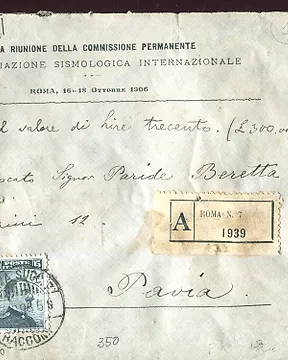 A RIUNIONE DELLA COMMISSIONE PERMANENTE
IAZIONE SISMOLOGICA INTERNAZIONALE
ROMA, 16-18 OTTOBRE 1906
il valore di lire trecento. (£300.00
cato Signor Paride Beretta
ini 12
A
ROMA N. 7
1939
Pavia
POSTE
15
RACCOM
350